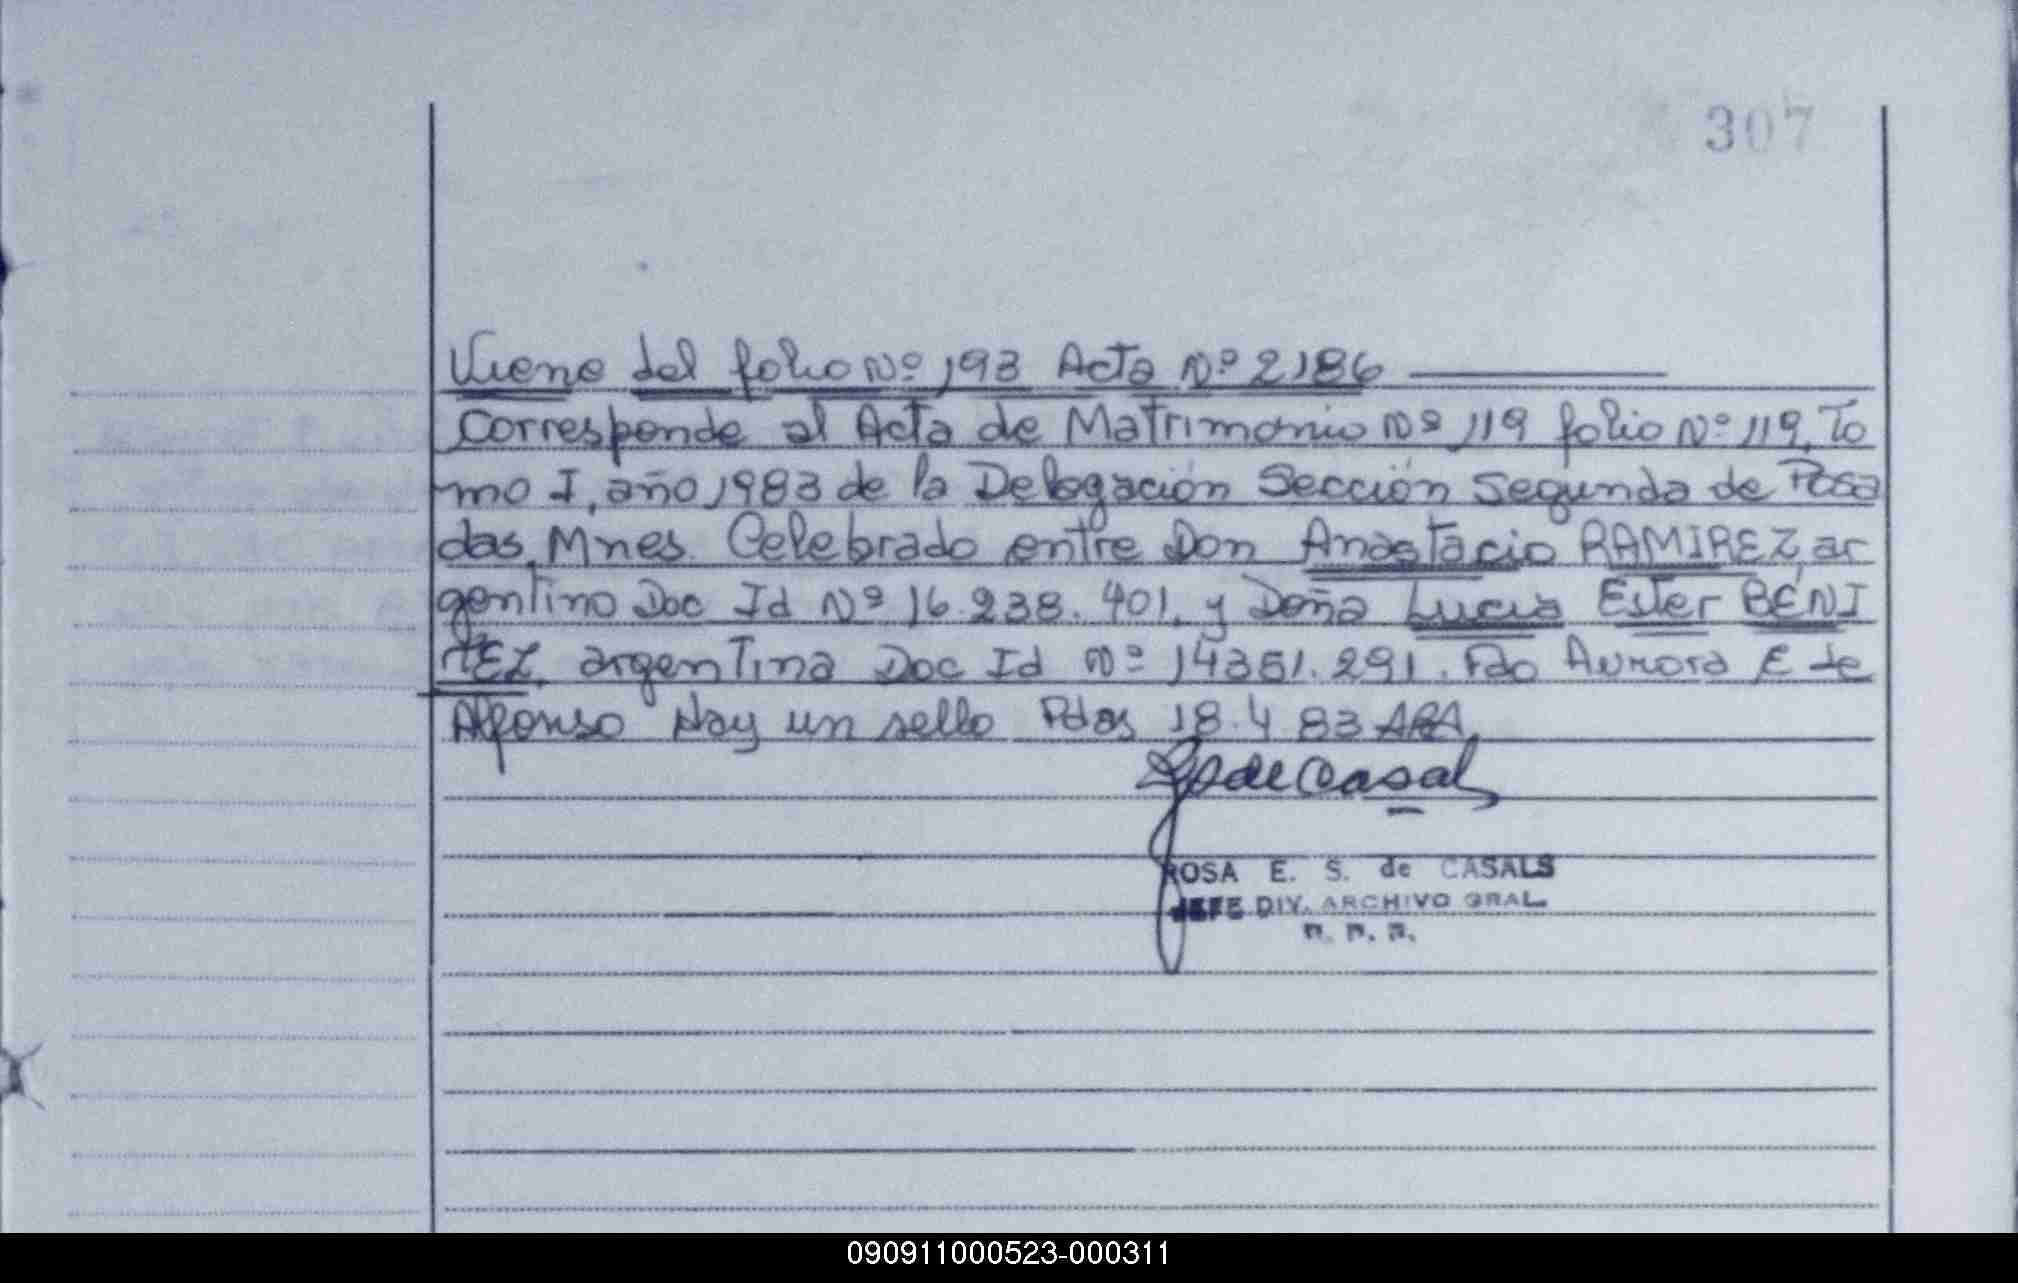 307
Viene del folio Nº 193 Acta Nº 2186
Corresponde al Acta de Matrimonio Nº 119 folio Nº 119, To
mo I, año 1983 de la Delegación Sección Segunda de Posa
das, Mnes. Celebrado entre Don Anastacio RAMIREZ, ar
gentino Doc Id Nº 16.238.401, y Doña Lucia Ester BENI
TEZ, argentina Doc Id Nº 14351.291. Fdo Aurora E de
Alfonso Hay un sello Pdas 18.4 83 ARA
de Casals
ROSA E. S. de CASALS
JEFE DIV. ARCHIVO GRAL.
090911000523-000311